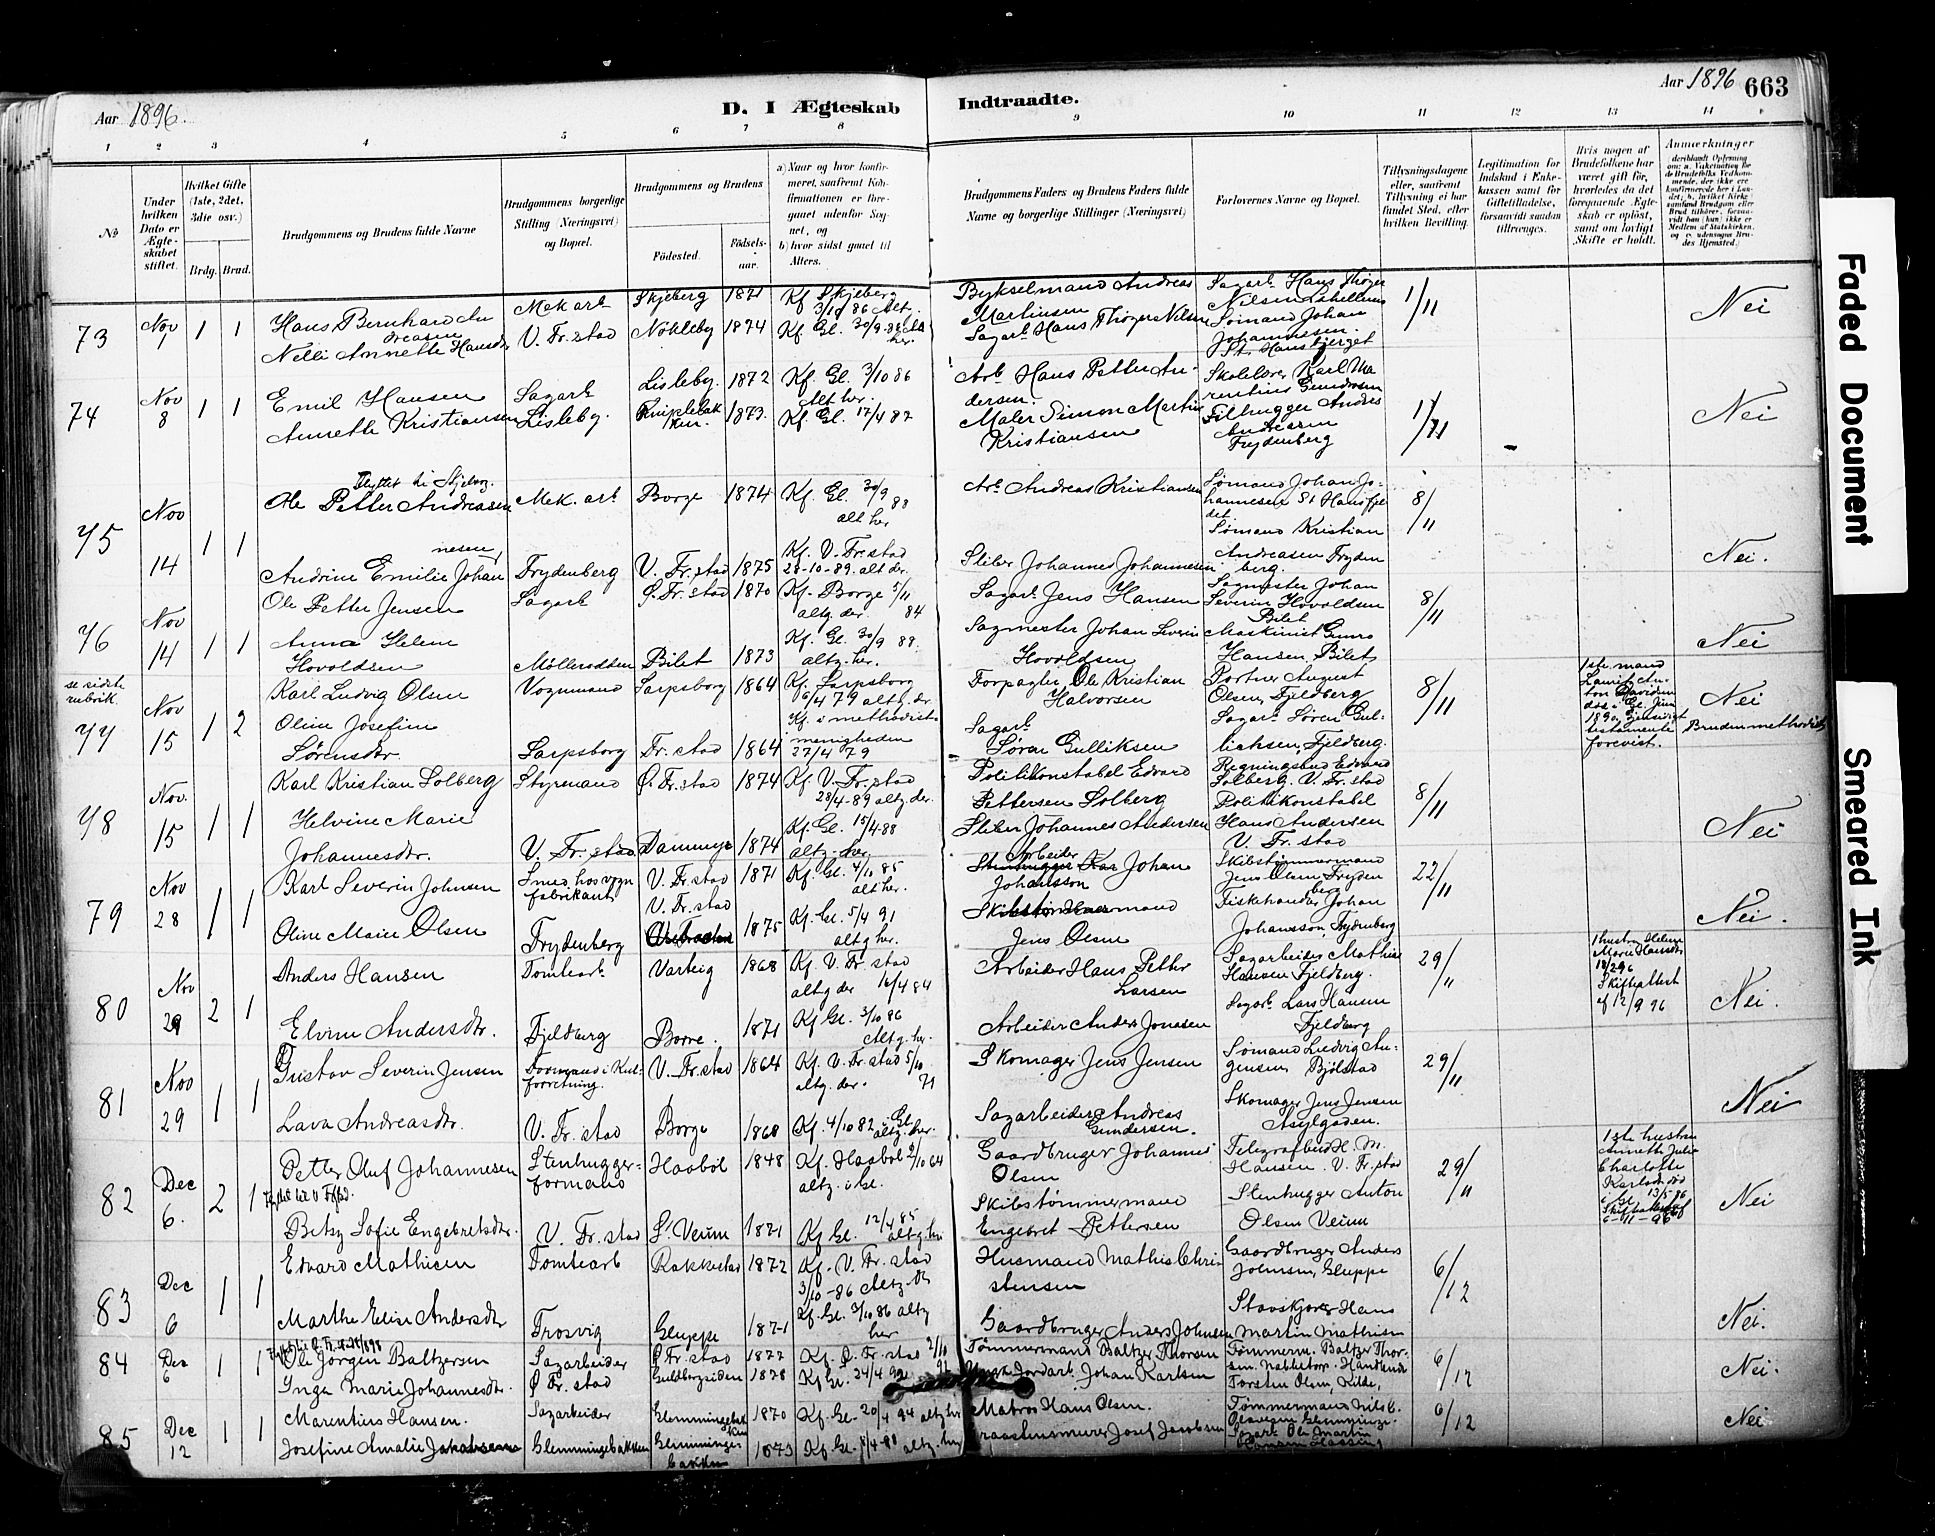 Aar 1896.
D. I Ægteskab
Indtraadte.
Aar 1896 663
1 2 3 4 5 6 7 8 9 10 11 12 13 14
No
Under hvilken Dato er Ægte-skabet stiftet.
Hvilket Gifte (1ste, 2det, 3die osv.)
Brdg. Brud.
Brudgommens og Brudens fulde Navne
Brudgommens borgerlige Stilling (Næringsvei) og Bopæl.
Brudgommens og Brudens
Födested.
Födsels-aar.
a) Naar og hvor konfir-meret, saafremt Kon-firmationen er fore-gaaet udenfor Sog-net, og
b) hvor sidst gaaet til Alters.
Brudgommens Faders og Brudens Faders fulde Navne og borgerlige Stillinger (Næringsvei)
Forlovernes Navne og Bopæl.
Tillysningsdagene eller, saafremt Tillysning ei har fundet Sted, efter hvilken Bevilling.
Legitimation for Indskud i Enke-kassen samt for Giftetilladelse, forsaavidt saadan tiltrænges.
Hvis nogen af Brudefolkene har været gift för, hvorledes da det foregaaende Ægte-skab er oplöst, samt om lovligt Skifte er holdt.
Anmærkninger
73
Nov 1
1 1
Hans Bernhard An
dreasen
Nelli Annette Hansdr
Mek arb
V. Fr. stad
Skjeberg 1871
Nökleby 1874
Kf Skjeberg
3/10 86 Alt.
Kf. Gl. 30/9 88 alt her.
Bykselmand Andreas
Martinsen
Sagarb Hans Thøger Nilsen
Sagarb. Hans Thøger
Nilsen
Sømand Johan
Johannesen.
St. Hansfjerget
1/11
Nei
74
Nov 8
1 1
Emil Hansen
Annette Kristiansen
Sagarb
Lisleby.
Lisleby. 1872
1873.
Kf. Gl. 3/10 86
Alt her.
Kf. Gl. 17/4 87
Arb Hans Petter An-
dersen.
Maler Simon Martin
Kristiansen
Skolelærer Karl Ma
rentius Gundersen
Filhugger Andres
Frydenberg
1/11
Nei
75
Nov 14
1 1
Flyttet til Skjeberg.
Ole Petter Andreasen
nesen,
Andrine Emilie Johan
Mek. arb
Frydenberg
Borge 1874
V. Fr. stad 1875
Kf. Gl. 30/9 88
alt her
Kf. V. Fr. stad
28-10-89. alt der.
Arb. Andreas Kristiansen
Sliber Johannes Johannesen
Sømand Johan Jo-
hannesen St Hansfjel
det
Sømand Kristian
Andreasen Fryden
berg.
8/11
Nei.
76
Nov 14
1 1
Ole Petter Jensen
Anna Helene
Hovoldsen
Sagarb
Möllerodden
Ø. Fr. stad 1870
Bilet 1873
Kf. Borge 5/11 84
altg. der
Kf. Gl. 30/9 88.
altg. her.
Sagarb Jens Hansen
Sagmester Johan Severin
Hovoldsen
Sagmester Johan
Severin Hovoldsen
Bilet
Maskinist Gunro
Hansen, Bilet
8/11
Nei
se sidste rubrik.
77
Nov 15
1 2
Karl Ludvig Olsen
Oline Josefine
Sørensdr.
Vognmand
Sarpsborg
Sarpsborg 1864
Fr. stad 1864
Kf. Sarpsborg
16/4 79 altg. der
Kf. i methodist-
menigheden
27/4 79
Forpagter Ole Kristian
Halvorsen
Sagarb
Søren Gulliksen
Portner August
Olsen, Fjeldberg
Sagarb. Søren Gul-
licksen, Fjeldberg.
8/11
1ste mand
Laurits An-
ton Davidsen
testamente
forevist.
Nei
Bruden methodist
78
Nov. 15
1 1
Karl Kristian Solberg
Helvine Marie
Johannesdr.
Styrmand
V. Fr. stad.
Ø. Fr. stad 1874
Dammyr 1874
Kf. V. Fr. stad
28/4-89 altg. der.
Kf. Gl. 15/4-88
altg. her.
Politikonstabel Edvard
Pettersen Solberg
Sliber Johannes Andersen
Regningsbud Edvard
Solberg. V. Fr. stad
Politikonstabel
Hans Andersen
V. Fr. stad
8/11
Nei
79
Nov 28
1 1
Karl Severin Johnsen
Oline Marie Olsen
Smed hos vogn
fabrikant
Frydenberg
V. Fr. stad 1871
V. Fr. stad 1875
Kf. Gl. 4/10 85
alt her.
Kf. Gl. 5/4 91
altg her.
Arbeider
Johan
Johansson
Skibstömmermand
Jens Olsen
Skibstömmermand
Jens Olsen Fryden
berg
Fiskehandler Johan
Johansson, Frydenberg
22/11
Nei.
80
Nov 29
2 1
Anders Hansen
Elvine Andersdr.
Tomtearb
Fjeldberg
Varteig 1868
Borre. 1871
Kf. V. Fr. stad
altg der 16/4 84
Kf Gl. 3/10 86
Altg. her.
Arbeider Hans Petter
Larsen
Arbeider Anders Jonasen
Sagarbeider Mathias
Hansen Fjeldberg.
Sagarb Lars Hansen
Fjeldberg
29/11
1 hustru Helene
Marie Hansdr
18/2 96
Skifteattest
af 12/9 96
Nei.
81
Nov 29
1 1
Gustav Severin Jensen
Lava Andreasdr.
Formand i Kul-
forretning.
V. Fr. stad
V. Fr. stad 1864
Borge 1868
Kf. V. Fr. stad 5/10 79
altg. der.
Kf. 4/10 82 i Gl.
altg. her.
Skomager Jens Jensen
Sagarbeider Andreas
Gundersen.
Sømand Ludvig An-
gensen, Bjölstad
Skomager Jens Jensen
Asylgaden.
29/11
Nei
82
Dec 6.
2 1
Petter Oluf Johannesen
Flyttet til V. Fr.stad.
Betzy Sofie Engebretsdr.
Stenhugger-
formand
V. Fr. stad
Haaböl 1848
S. Veum 1871
Kf. Haaböl 2/10 64
altg. i Gl.
Kf Gl. 12/4 85
altg her
Gaardbruger Johannes
Olsen
Skibstømmermand
Engebret Pettersen
Telegrafbud H. M.
Hansen. V. Fr. stad
Stenhugger Anton
Olsen Veum
29/11
1ste hustru
Annette Julie
Charlotte
Karlsen död
i Gl. 13/5-96
Skifteattest af
6-11-96
Nei
83
Dec 6
1 1
Edvard Mathisen
Marthe Elise Andersdtr
Tomtearb
Trosvig
Rakkestad 1872
Gluppe 1871
Kf. V. Fr. stad
3/10-86 Altg. der
Kf. Gl. 3/10 86 altg
her
Husmand Mathis Chri
stensen
Gaardbruger Anders Johnsen
Gaardbruger Anders
Johnsen, Gluppe
Stavskjærer Hans
Martin Mathisen
6/12
Nei.
84
Dec 6
1 1
Ole Jörgen Baltzersen
Inga Marie Johannesdtr.
Sagarbeider
Ø Fr. stad
Ø Fr. stad 1877
Guldbergsiden 1878
Kf. Ø. Fr. stad 2/10
Kf Gl. 24/4 92
Tømmermand Baltzer Thorsen
Jordarb. Johan Karlsen
Tömmerm. Baltzer Thor-
sen. Nabbetorp. Handlende
Torsten Olsen, Kilde,
6/12
Nei.
85
Dec 12
1 1
Marentius Hansen.
Josefine Amalie
Sagarbeider
Glemmingebakken
1870
Glemminge-
bakken 1873
Kf. Gl. 20/4 94 altg her
Kf Gl. altg. her
Matros Hans Olsen.
Josef Jacobsen
Tømmermand Nils C.
Sagarb. Ole Martin
6/12
Nei
Faded Document
Smeared Ink